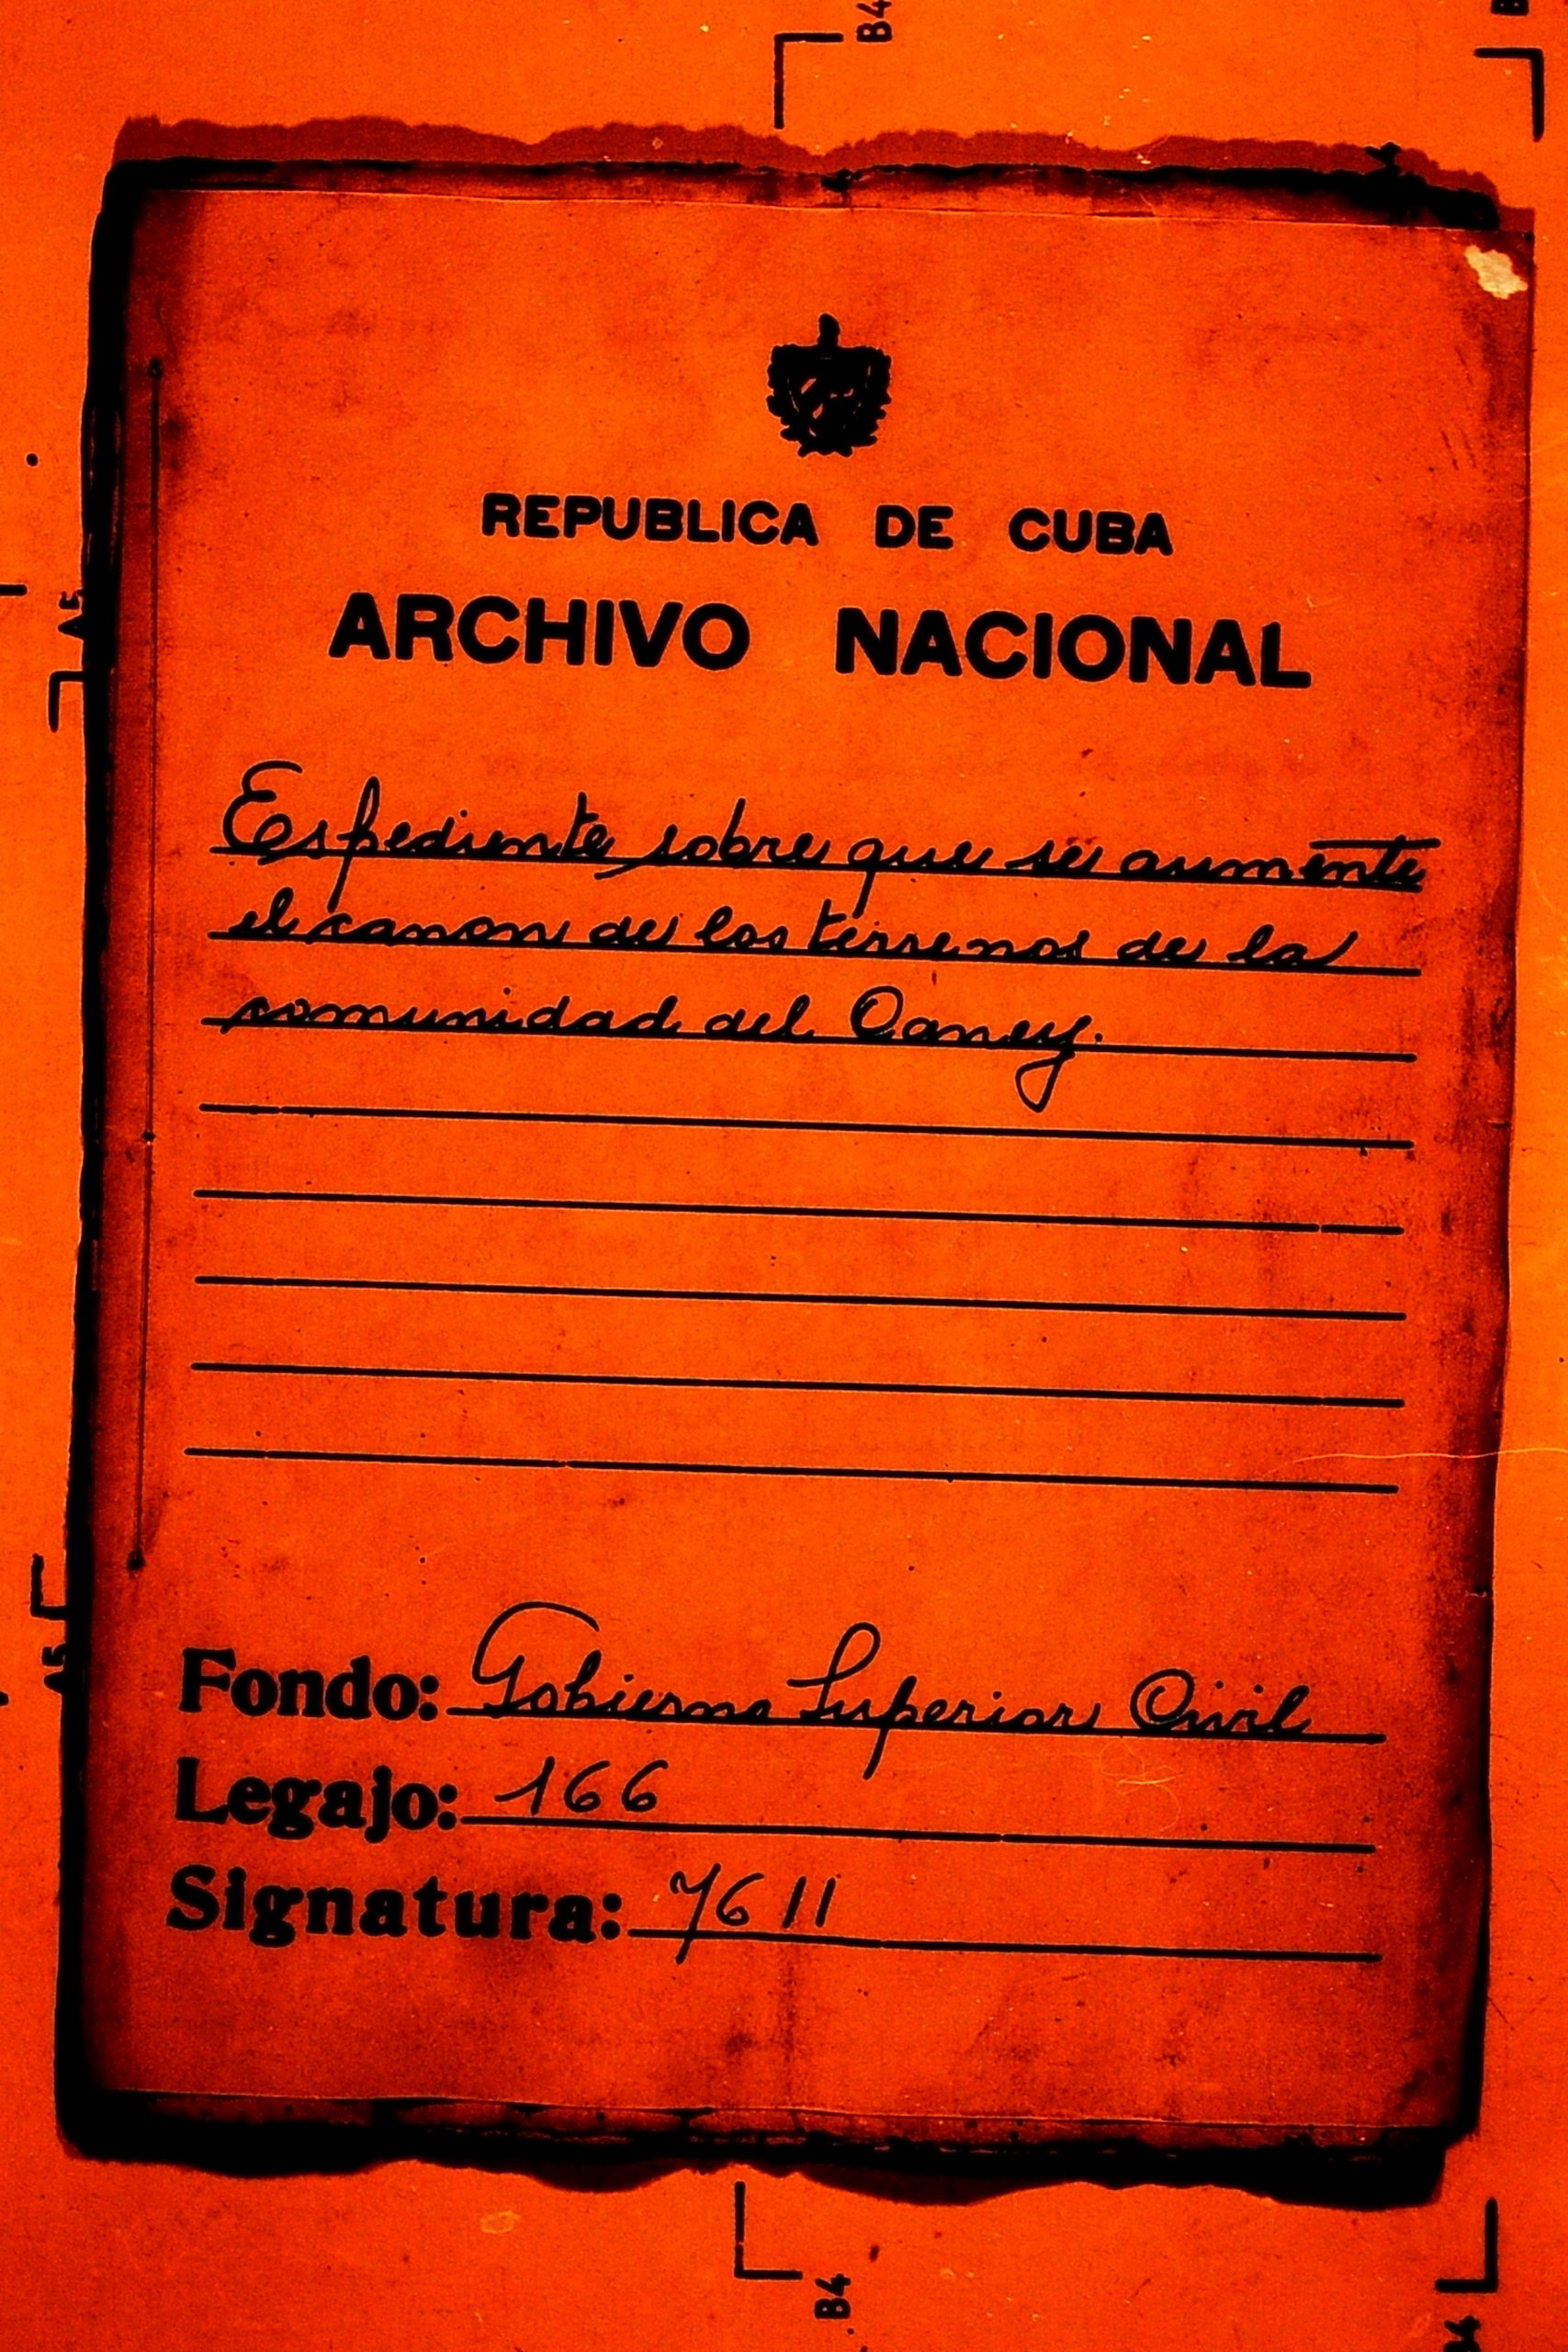 B4
REPUBLICA DE CUBA
ARCHIVO NACIONAL
Espediente sobre que se aumente
el canon de los terrenos de la
comunidad del Caney.
Fondo: Gobierno Superior Civil
Legajo: 166
Signatura: 7611
A5
A5
B4